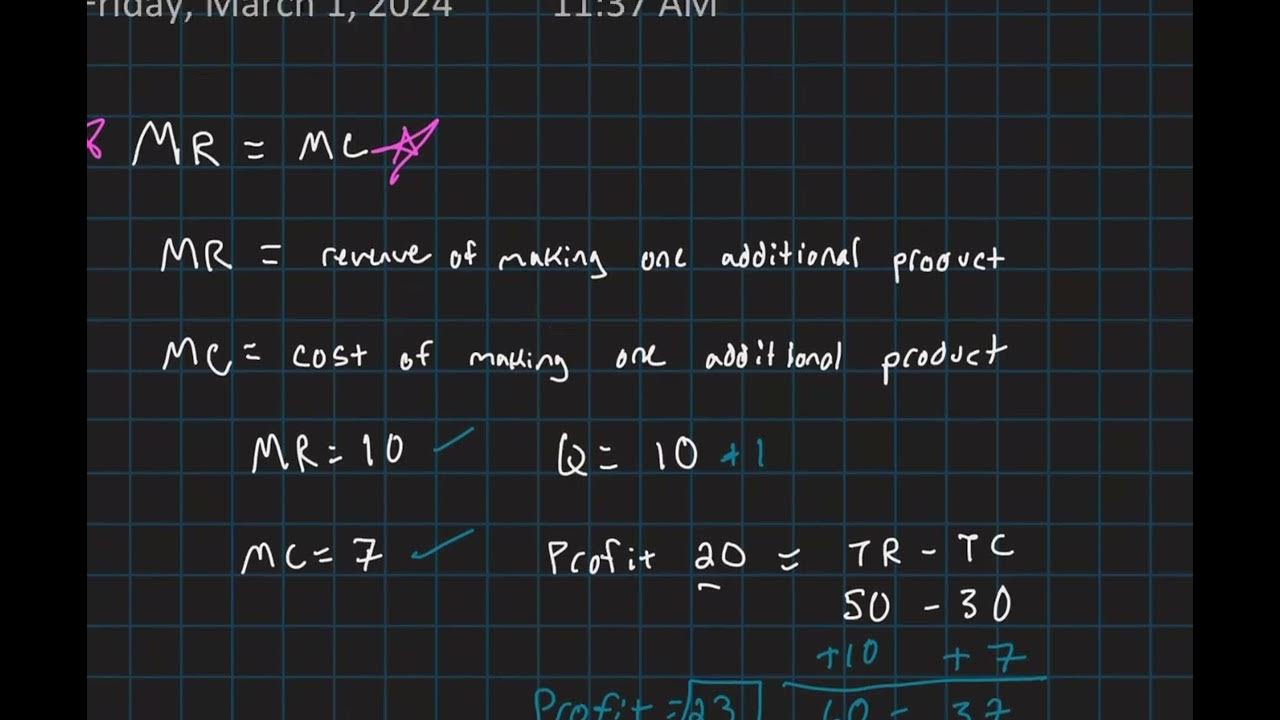 Friday, March 1, 2024 11:37 AM
MR = MC
MR = revenue of making one additional product
MC = cost of making one additional product
MR = 10 Q = 10 + 1
MC = 7 Profit 20 = TR - TC
50 - 30
+10 + 7
Profit = 23 60 - 37